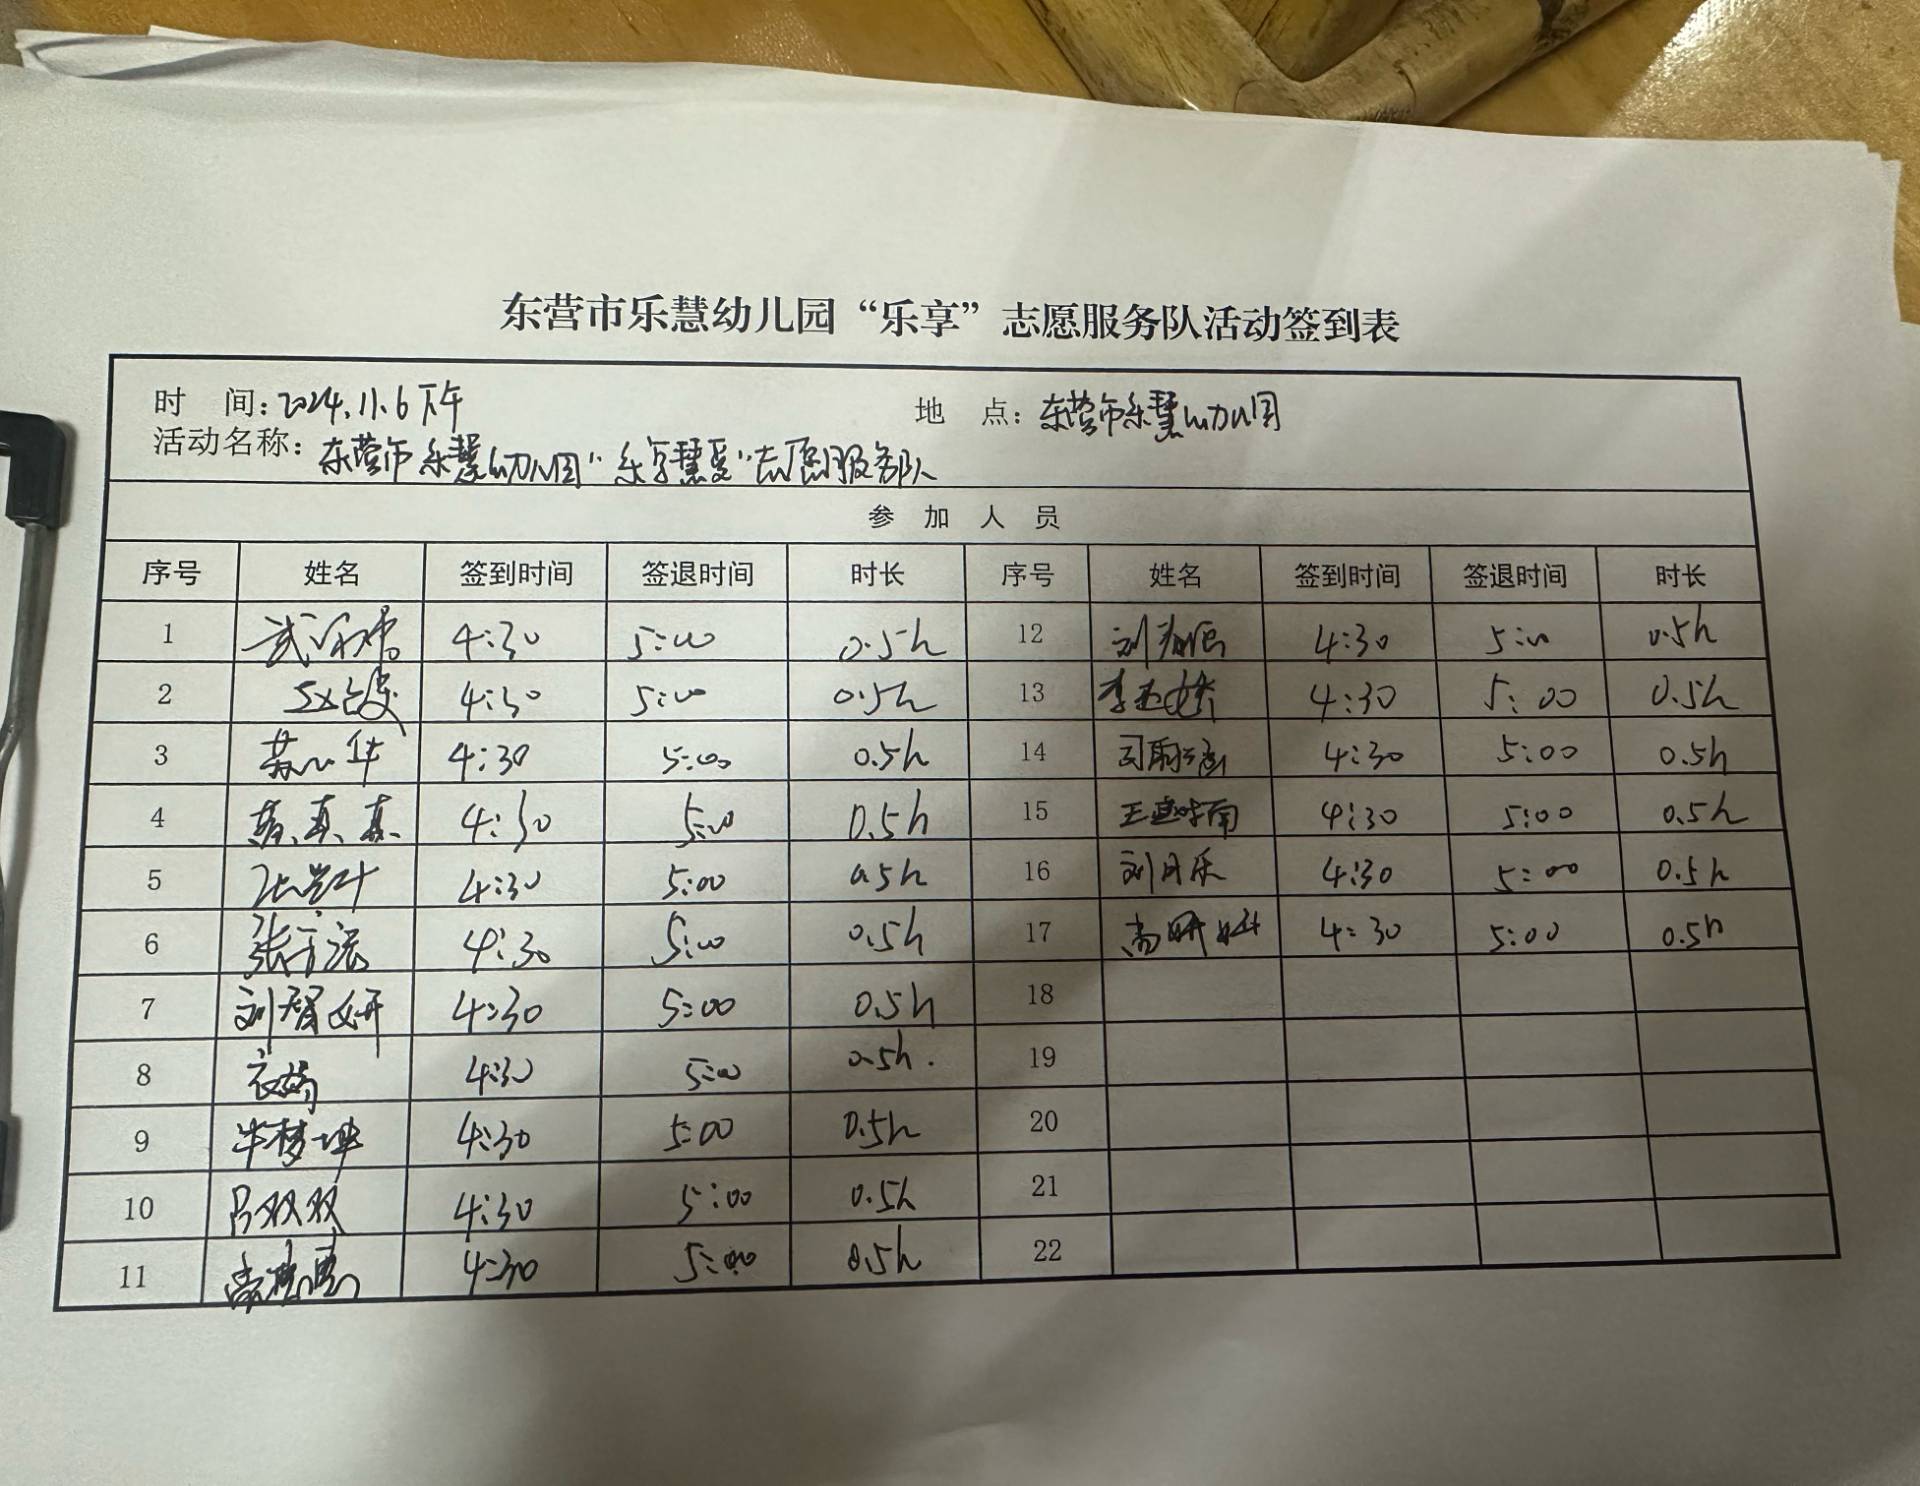 东营市乐慧幼儿园“乐享”志愿服务队活动签到表
时 间：2024.11.6下午 地 点：东营市乐慧幼儿园
活动名称：东营市乐慧幼儿园“乐享慧爱”志愿服务队
参 加 人 员
序号 姓名 签到时间 签退时间 时长 序号 姓名 签到时间 签退时间 时长
1 4:30 5:00 0.5h 12 刘 4:30 5:00 0.5h
2 4:30 5:00 0.5h 13 李 4:30 5:00 0.5h
3 4:30 5:00 0.5h 14 司 4:30 5:00 0.5h
4 真真 4:30 5:00 0.5h 15 王 4:30 5:00 0.5h
5 4:30 5:00 0.5h 16 刘月乐 4:30 5:00 0.5h
6 张 4:30 5:00 0.5h 17 高妍妍 4:30 5:00 0.5h
7 刘智妍 4:30 5:00 0.5h 18
8 4:30 5:00 0.5h. 19
9 牛梦坤 4:30 5:00 0.5h 20
10 吕双双 4:30 5:00 0.5h 21
11 4:30 5:00 0.5h 22